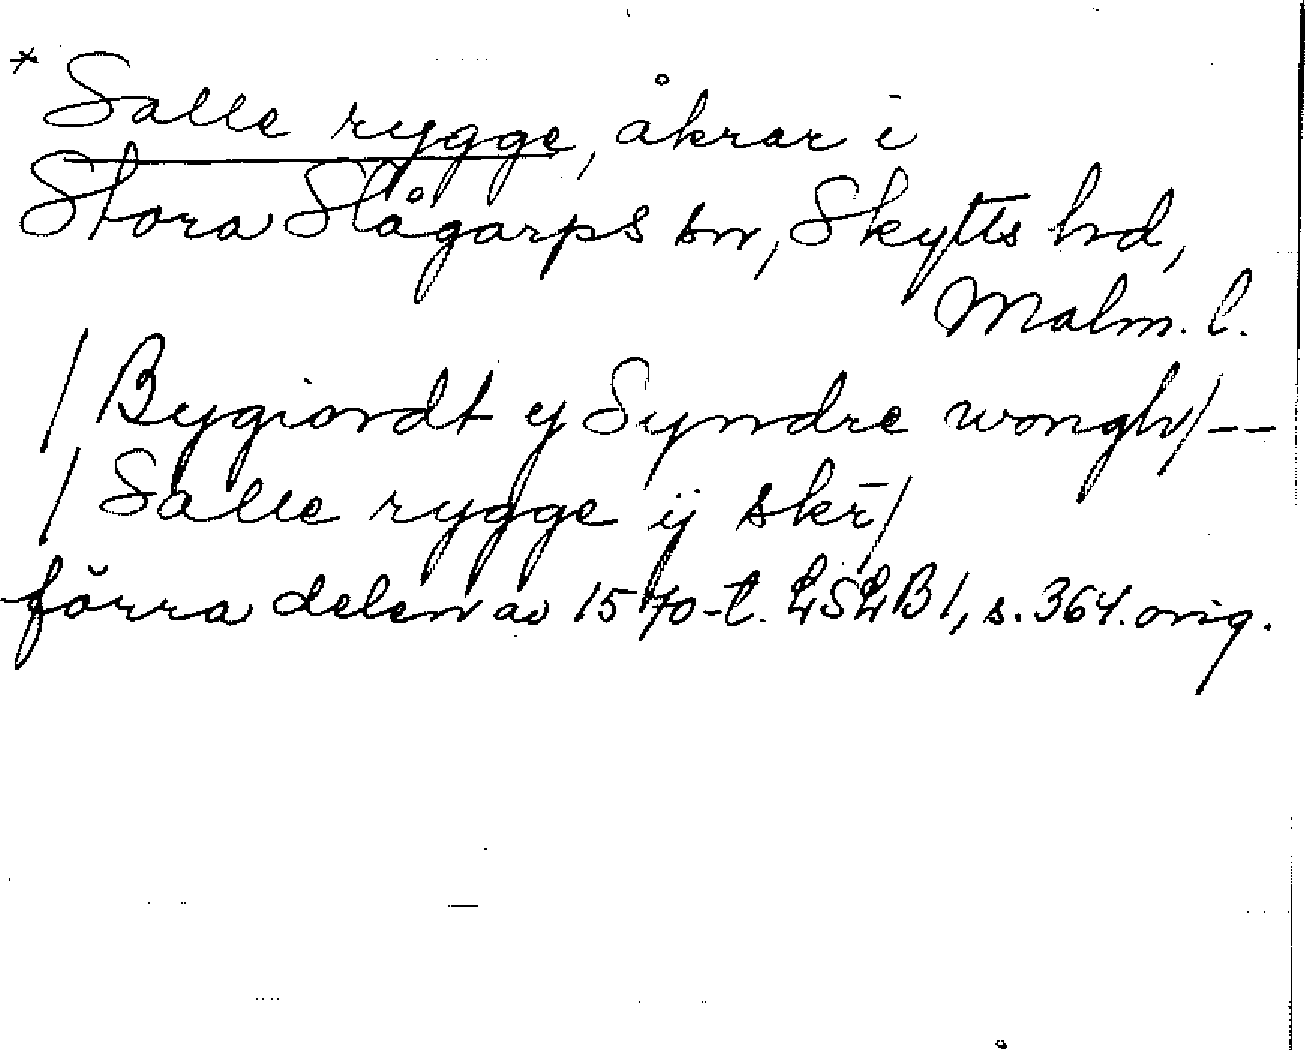 * Salle rygge, åkrar i
Stora Slågarps sn, Skytts hd,
Malm. l.
/Bygiordt y Syndre wongh/--
/Salle rygge ÿ skr̄/
förra delen av 1570-t. LSLB1, s. 364. orig.